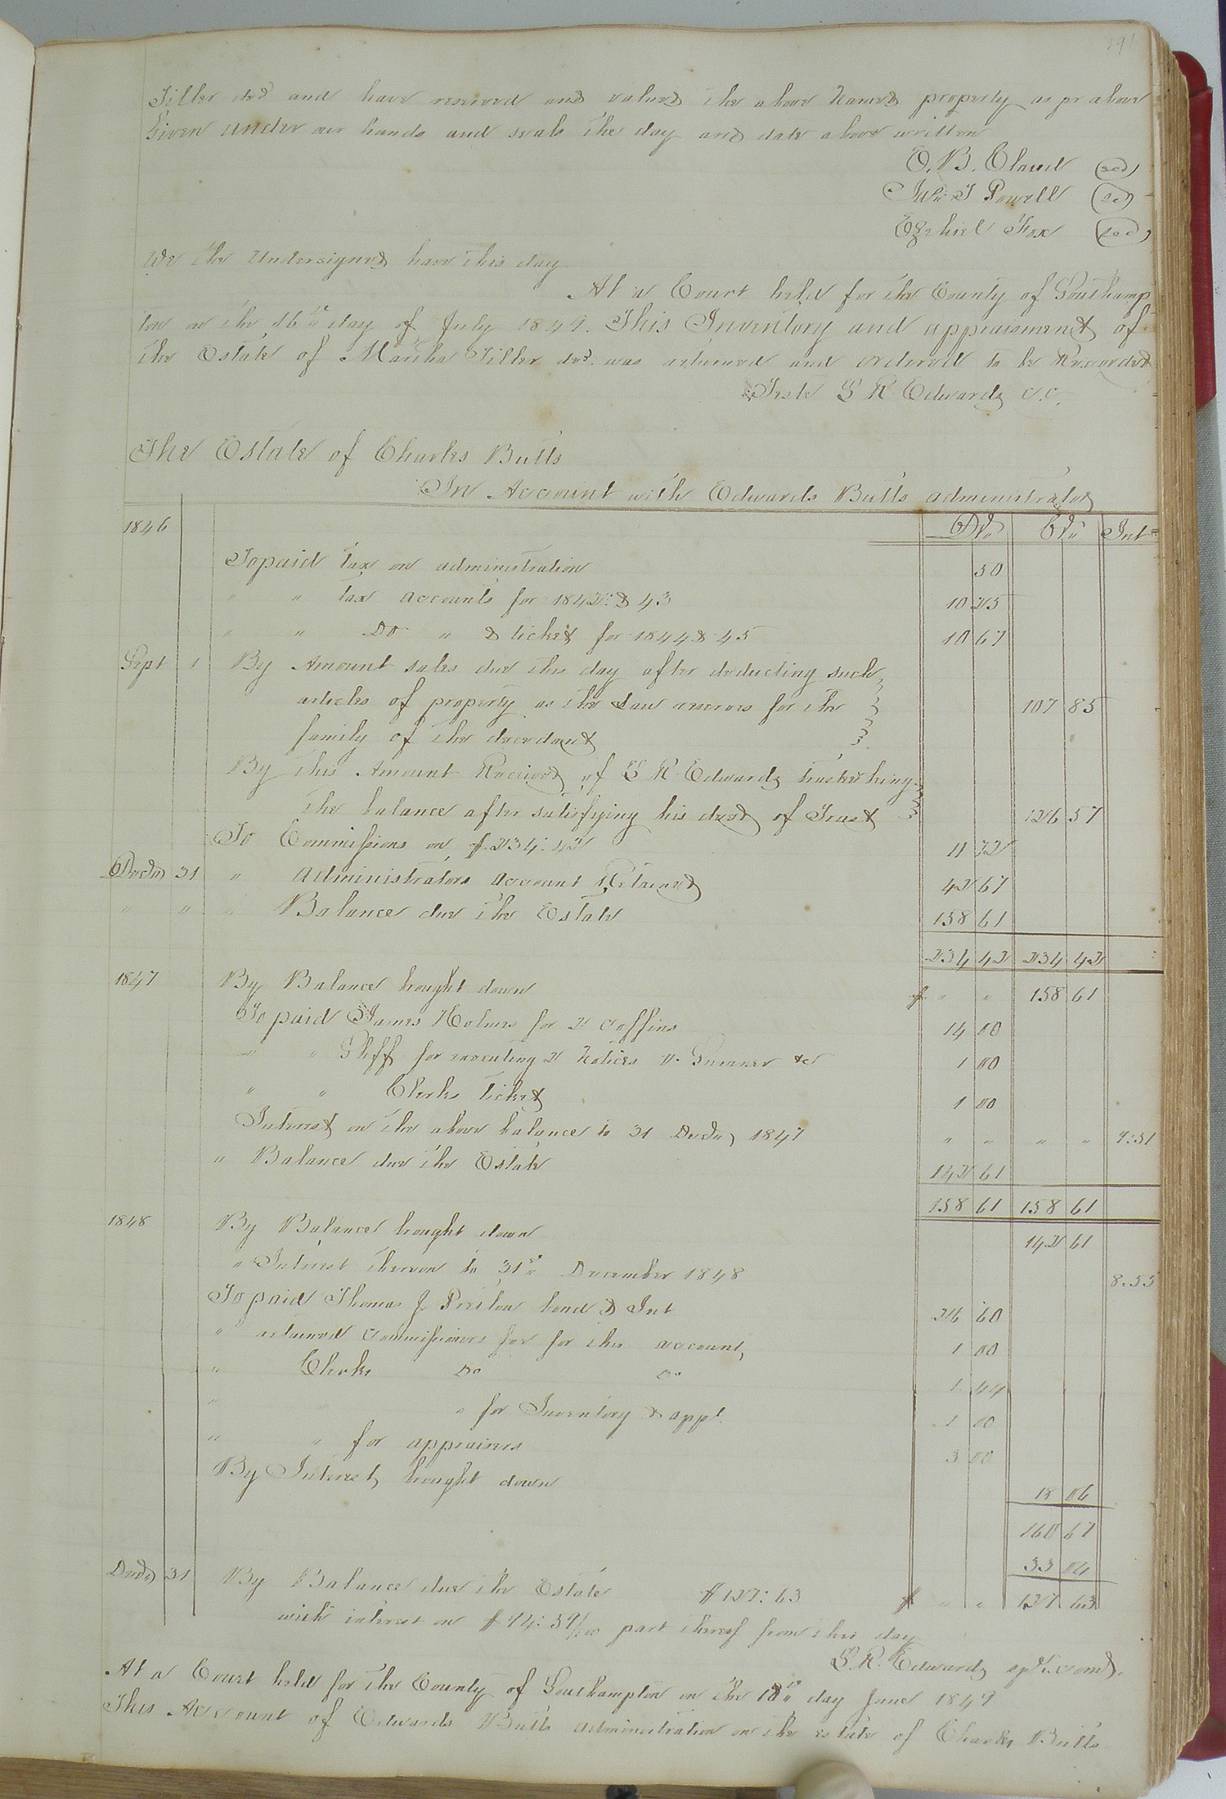 Tiller decd and have viewed and valued the above named property as pr above
Given under our hands and seals the day and date above written
O. B. Claud (seal)
Jno. T Powell (seal)
Ezekiel Fox (seal)
We the undersigned have this day
At a Court held for the County of Southamp
ton on the 16th day of July 1849. This Inventory and appraisment of
the Estate of Martha Tiller decd. was returned and ordered to be Recorded
Teste L R Edwards C.C.
The Estate of Charles Butts
In Account with Edwards Butts administrator
1846 Drs Crs Int
To paid tax on administration 50
" " tax accounts for 1842 & 43 10 25
" " Do " & ticket for 1844 & 45 10 67
Sept 1 By Amount sales due this day after deducting such
articles of property as the Law reserves for the 107 85
family of the decedent
By this Amount Received of L R Edwards trustee being
the balance after satisfying his deed of Trust 126 57
To Commissions on $234:42 11 72
Decr 31 " administrators account Retained 42 67
" " " Balance due the Estate 158 61
234 42 234 42
1847 By Balance brought down $ " " 158 61
To paid James Holmes for 2 coffins 14 00
" " Shff for executing 2 notices 1 00
" " Clerks ticket 1 00
Interest on the above balance to 31 Decr 1847 " " " " 9:51
" Balance due the Estate 142 61
158 61 158 61
1848 By Balance brought down 142 61
" Interest thereon to 31st December 1848 8.55
To paid Thomas J. bond & Int 26 60
" returned Commissioners fee for this account 1 00
" Clerks Do Do 1 44
" " for Inventory & appt. 1 00
" " for appraisers 3 00
By Interest brought down 18 06
160 67
33 04
Decr 31 By Balance due the Estate $127:63 $ " " 127 63
with interest on part thereof from this day
L. R. Edwards
At a Court held for the County of Southampton on the 18th day June 1849
This Account of Edwards Butts administration on the estate of Charles Butts